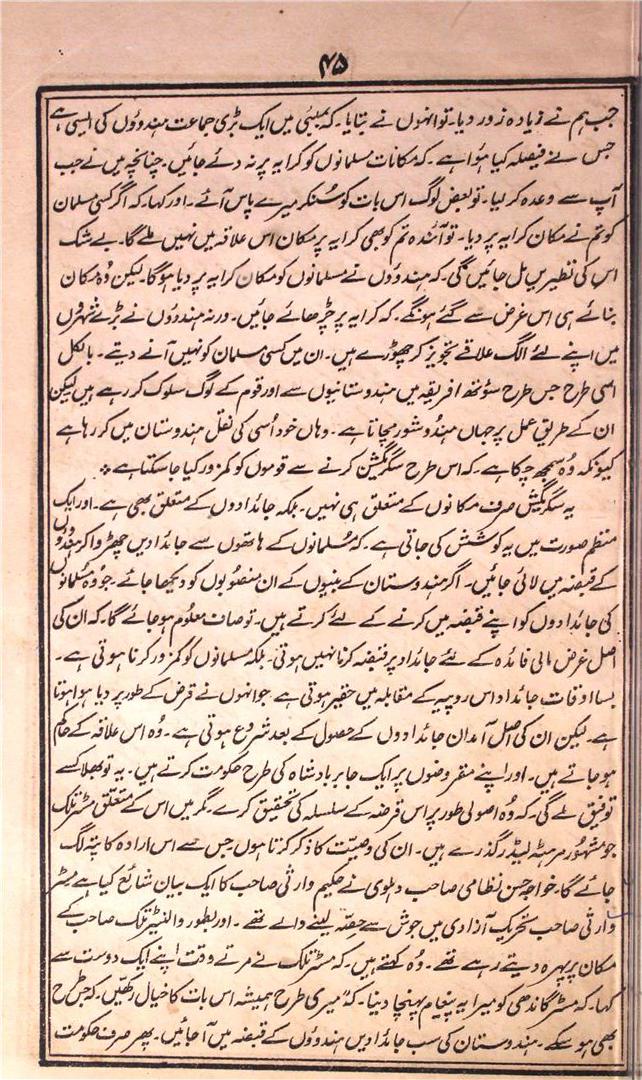 ۴۵
جب ہم نے زیادہ زور دیا۔ تو انہوں نے بتایا۔ کہ بمبئی میں ایک بڑی جماعت ہندوؤں کی ایسی ہے
جس نے فیصلہ کیا ہؤا ہے۔ کہ مکانات مسلمانوں کو کرایہ پر نہ دئے جائیں۔ چنانچہ میں نے جب
آپ سے وعدہ کر لیا۔ تو بعض لوگ اس بات کو سُنکر میرے پاس آئے۔ اور کہا۔ کہ اگر کسی مسلمان
کو تم نے مکان کرایہ پر دیا۔ تو آئندہ تم کو بھی کرایہ پر مکان اس علاقہ میں نہیں ملے گا۔ بے شک
اس کی نظیریں مل جائیں گی۔ کہ ہندوؤں نے مسلمانوں کو مکان کرایہ پر دیا ہوگا۔ لیکن وُہ مکان
بنائے ہی اس غرض سے گئے ہونگے۔ کہ کرایہ پر چڑھائے جائیں۔ ورنہ ہندوؤں نے بڑے شہروں
میں اپنے لئے الگ علاقے تجویز کر چھوڑے ہیں۔ ان میں کسی مسلمان کو نہیں آنے دیتے۔ بالکل
اسی طرح جس طرح سؤتھ افریقہ میں ہندوستانیوں سے اور قوم کے لوگ سلوک کر رہے ہیں لیکن
ان کے طریق عمل پر جہاں ہندُو شور مچاتا ہے۔ وہاں خود اُسی کی نقل ہندوستان میں کر رہا ہے
کیونکہ وُہ سمجھ چکا ہے۔ کہ اس طرح سگریگیشن کرنے سے قوموں کو کمزور کیا جا سکتا ہے
یہ سگریگیشن صرف مکانوں کے متعلق ہی نہیں۔ بلکہ جائدادوں کے متعلق بھی ہے۔ اور ایک
منظم صورت میں یہ کوشش کی جاتی ہے۔ کہ مُسلمانوں کے ہاتھوں سے جائدادیں چھڑوا کر ہندوؤں
کے قبضہ میں لائی جائیں۔ اگر ہندوستان کے بنیوں کے ان منصوبوں کو دیکھا جائے۔ جو وُہ مُسلمانوں
کی جائدادوں کو اپنے قبضہ میں کرنے کے لئے کرتے ہیں۔ تو صاف معلُوم ہو جائے گا۔ کہ ان کی
اصل غرض مالی فائدہ کے لئے جائداد پر قبضہ کرنا نہیں ہوتی۔ بلکہ مسلمانوں کو کمزور کرنا ہوتی ہے۔
بسا اوقات جائداد اس روپیہ کے مقابلہ میں حقیر ہوتی ہے جو انہوں نے قرض کے طور پر دیا ہؤا ہوتا
ہے۔ لیکن ان کی اصل آمدان جائدادوں کے حصول کے بعد شروع ہوتی ہے۔ وُہ اس علاقہ کے حاکم
ہو جاتے ہیں۔ اور اپنے مقروضوں پر ایک جابر بادشاہ کی طرح حکومت کرتے ہیں۔ یہ تو بھلا کسے
توفیق ملے گی۔ کہ وُہ اصولی طور پر اس قرضہ کے سلسلہ کی تحقیق کرے۔ مگر میں اس کے متعلق مسٹر تلک
جو مشہور مرہٹہ لیڈر گذرے ہیں۔ ان کی وصیّت کا ذکر کرتا ہوں جس سے اس ارادہ کا پتہ لگ
جائے گا۔ خواجہ حسن نظامی صاحب دہلوی نے حکیم وارثی صاحب کا ایک بیان شائع کیا ہے مسٹر
وارثی صاحب تحریک آزادی میں جوش سے حصّہ لینے والے تھے۔ اور بطور والنٹیر تلک صاحب کے
مکان پر پہرہ دیتے رہے تھے۔ وُہ کہتے ہیں۔ کہ مسٹر تلک نے مرتے وقت اپنے ایک دوست سے
کہا۔ کہ مسٹر گاندھی کو میرا یہ پیغام پہنچا دینا۔ کہ "میری طرح ہمیشہ اس بات کا خیال رکھیں۔ کہ جس طرح
بھی ہو سکے۔ ہندوستان کی سب جائدادیں ہندوؤں کے قبضہ میں آ جائیں۔ پھر صرف حکومت